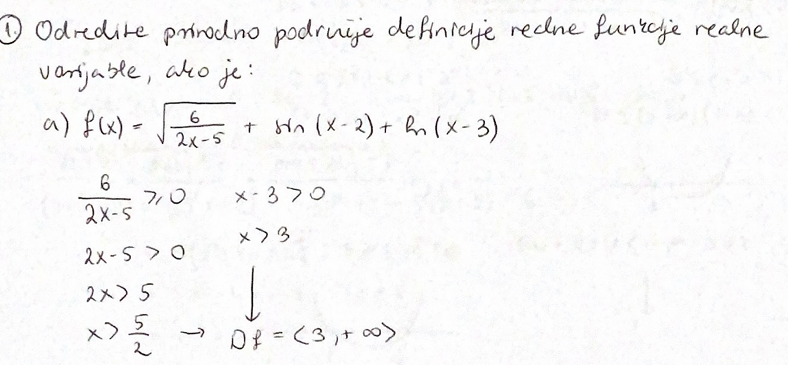 1. Odredite prirodno područje definicije realne funkcije realne
varijable, ako je:
a) f(x) = √(6/(2x-5)) + sin (x-2) + ln (x-3)
6/(2x-5) ≥ 0 x-3 > 0
2x-5 > 0 x > 3
2x > 5 ↓
x > 5/2 → Df = <3, +∞>